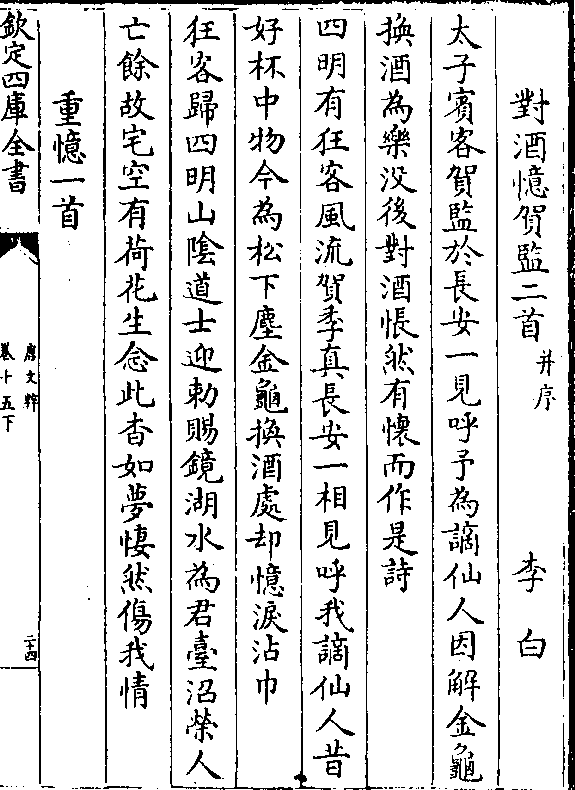 對酒憶賀監二首 并序 李白
太子賓客賀監於長安一見呼予為謫仙人因解金龜
換酒為樂没後對酒悵然有懷而作是詩
四明有狂客風流賀季真長安一相見呼我謫仙人昔
好杯中物今為松下塵金龜換酒處却憶淚沾巾
狂客歸四明山陰道士迎勅賜鏡湖水為君臺沼榮人
亡餘故宅空有荷花生念此杳如夢悽然傷我情
重憶一首
欽定四庫全書
唐文粹
卷十五下
二十四